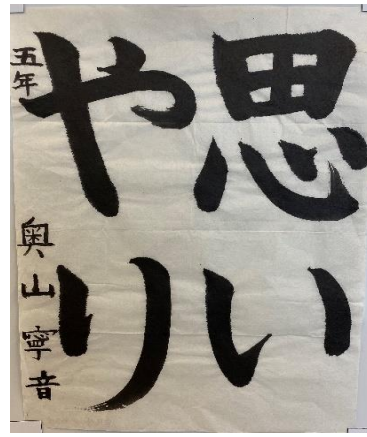 思い
やり
五年 奥山寧音